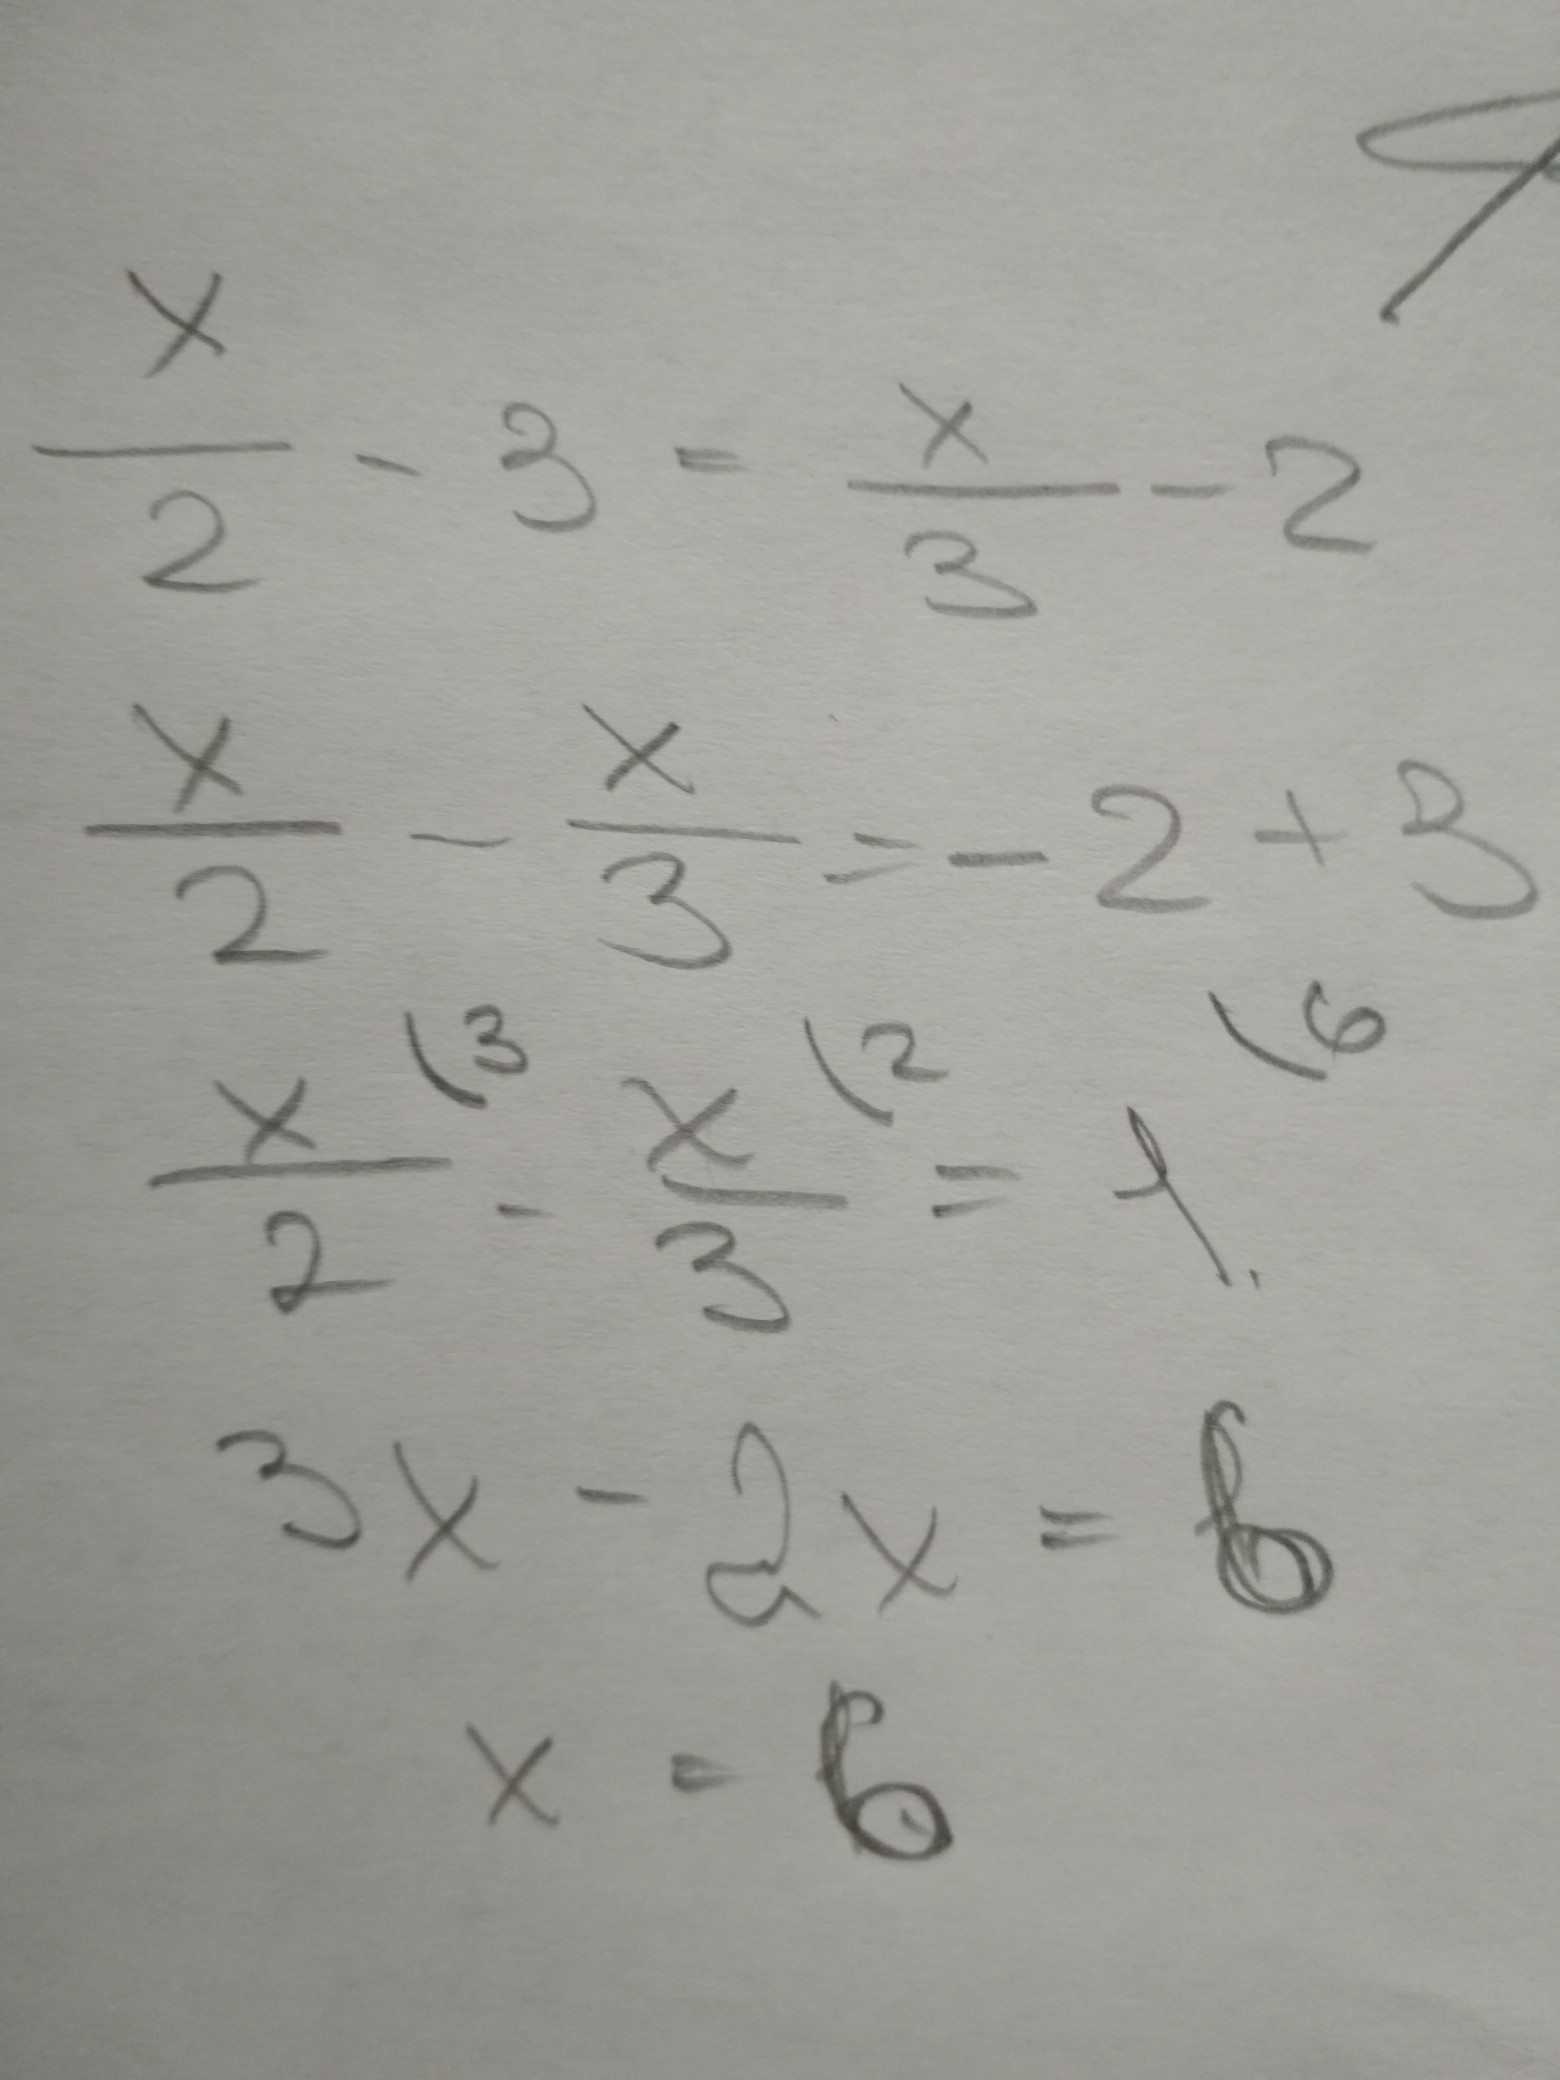 x/2 - 3 = x/3 - 2
x/2 - x/3 = -2 + 3
x/2 \3 - x/3 \2 = 1. \6
3x - 2x = 6
x = 6